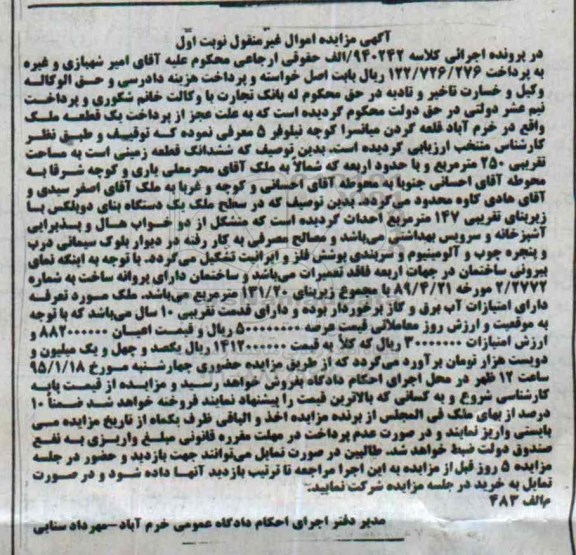 آگهی مزایده اموال غیرمنقول نوبت اول
در پرونده اجرائی کلاسه ۹۴۰۲۴۲/الف حقوقی ارجاعی محکوم علیه آقای امیر شهبازی و غیره
به پرداخت ۱۲۲/۷۲۶/۲۷۶ ریال بابت اصل خواسته و پرداخت هزینه دادرسی و حق الوکاله
وکیل و خسارت تاخیر و تادیه در حق محکوم له بانک تجارت با وکالت خانم شکوری و پرداخت
نیم عشر دولتی در حق دولت محکوم گردیده است که به علت عجز از پرداخت یک قطعه ملک
واقع در خرم آباد قلعه گردن میانسرا کوچه نیلوفر ۵ معرفی نموده که توقیف و طبق نظر
کارشناس منتخب ارزیابی گردیده است. بدین توصیف که ششدانگ قطعه زمینی است به مساحت
تقریبی ۲۵۰ مترمربع و با حدود اربعه که شمالاً به ملک آقای محرمعلی یاری و کوچه شرقا به
محوطه آقای احسانی جنوبا به محوطه آقای احسانی و کوچه و غربا به ملک آقای اصغر سیدی و
آقای هادی کاوه محدود می‌گردد. بدین توصیف که در سطح ملک یک دستگاه بنای دوبلکس با
زیربنای تقریبی ۱۴۷ مترمربع احداث گردیده است که متشکل از دو خواب هال و پذیرایی
آشپزخانه و سرویس بهداشتی می‌باشد و مصالح مصرفی به کار رفته در دیوار بلوک سیمانی درب
و پنجره چوب و آلومینیوم و سربندی پوشش فلز و ایرانیت تشکیل می‌گردد. با توجه به اینکه نمای
بیرونی ساختمان در جهات اربعه فاقد تعمیرات می‌باشد و ساختمان دارای پروانه ساخت به شماره
۲/۲۷۷۲ مورخه ۸۹/۴/۲۱ با مجموع زیربنای ۱۳۱/۲۰ مترمربع می‌باشد. ملک مورد تعرفه
دارای امتیازات آب برق و گاز برخوردار بوده و دارای قدمت تقریبی ۱۰ سال می‌باشد که با توجه
به موقعیت و ارزش روز معاملاتی قیمت عرصه ۵۰۰۰۰۰۰۰۰ ریال و قیمت اعیان ۸۸۲۰۰۰۰۰۰ و
ارزش امتیازات ۳۰۰۰۰۰۰۰ ریال که کلاً به قیمت ۱۴۱۲۰۰۰۰۰۰ ریال یکصد و چهل و یک میلیون و
دویست هزار تومان برآورد می‌گردد که از طریق مزایده حضوری چهارشنبه مورخ ۹۵/۱/۱۸
ساعت ۱۲ ظهر در محل اجرای احکام دادگاه بفروش خواهد رسید و مزایده از قیمت پایه
کارشناسی شروع و به کسانی که بالاترین قیمت را پیشنهاد نمایند فروخته خواهد شد ضمناً ۱۰
درصد از بهای ملک فی المجلس از برنده مزایده اخذ و الباقی ظرف یکماه از تاریخ مزایده می
بایستی واریز نمایند و در صورت عدم پرداخت در مهلت مقرره قانونی مبلغ واریزی به نفع
صندوق دولت ضبط خواهد شد. طالبین در صورت تمایل می‌توانند جهت بازدید و حضور در جلسه
مزایده ۵ روز قبل از مزایده به این اجرا مراجعه تا ترتیب بازدید آنها داده شود و در صورت
تمایل به خرید در جلسه مزایده شرکت نمایید.
م/الف ۴۸۳
مدیر دفتر اجرای احکام دادگاه عمومی خرم آباد-مهرداد سنایی